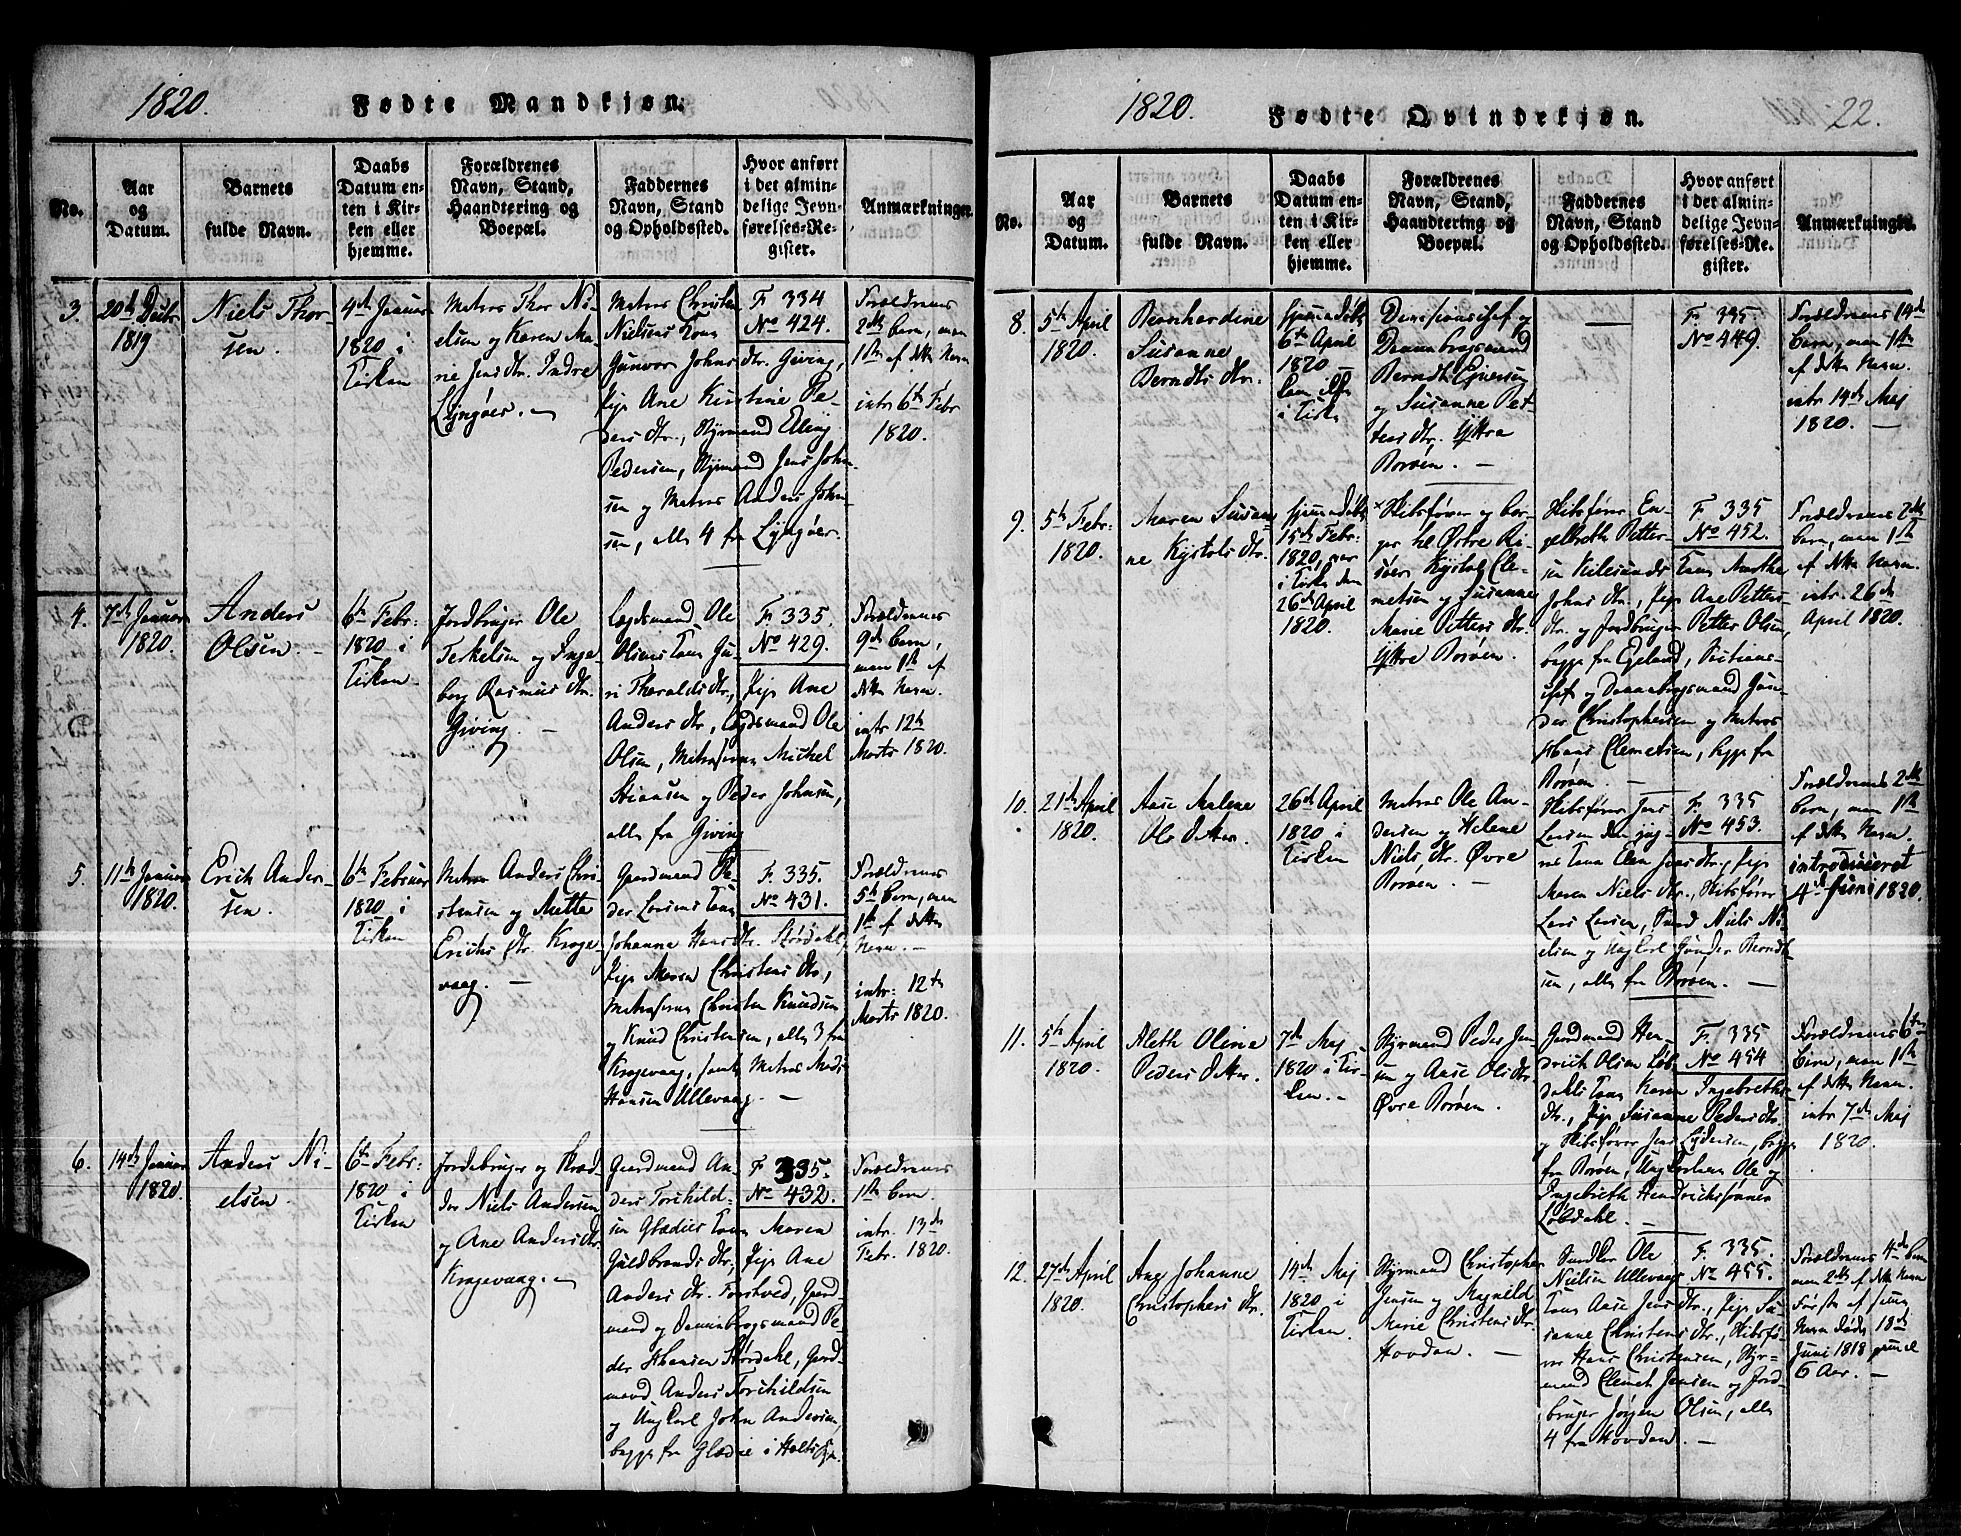 1820. Fødte Mandkjøn.
No.
Aar
og
Datum.
Barnets
fulde Navn.
Daabs
Datum en-
ten i Kir-
ken eller
hjemme.
Forældrenes
Navn, Stand,
Haandtering og
Boepæl.
Faddernes
Navn, Stand
og Opholdssted.
Hvor anført
i det almin-
delige Jevn-
førelses-Re-
gister.
Anmærkninger.
3.
20de Decbr
1819
Niels Thor-
sen.
4de Januar
1820 i
Kirken
Matros Thor Ni-
elsen og Karen Ma-
rie Jensdtr. Indre
Lyngøer. —
Matros Christen
Nielsens Kone
Gunvor Johnsdtr. Giving,
Pige Ane Kirstine Pe-
dersdtr., Styrmand Elling
Pedersen, Styrmand Jens John-
sen og Matros Anders John-
sen, alle 4 fra Lyngøer.
F 334
No 424.
Forældrenes
2det Barn, men
1ste af dette Navn
intr 6te Febr
1820.
4.
7de Januar
1820.
Anders
Olsen. —
6te Febr:
1820 i
Kirken
Jordbruger Ole
Terkelsen og Inge-
borg Rasmusdtr.
Giving. —
Lægdsmand Ole
Olsens Kone Gu-
ri Tharaldsdtr,
Pige Ane
Andersdtr, Lægdsmand Ole
Olsen, Matroserne Michel
Stiansen og Peder Johnsen,
alle fra Giving
F. 335.
No 429.
Forældrenes
9de Barn,
men 1ste af
dette Navn.
intr 12te
Marts 1820.
5.
11te Januar
1820.
Erich Ander-
sen.
6te Februar
1820 i
Kirken
Matros Anders Chri-
stensen og Mette
Erichsdtr. Krage-
vaag. —
Gaardmand Pe-
der Larsens Kone
Johanne Hansdtr. Stördahl,
Pige Maren Christensdtr,
Matroserne Christen Knudsen
og Knud Christensen, alle 3 fra
Kragevaag, samt Matros Mads
Hansen Ullevaag. —
F. 335.
No 431.
Forældrenes
5te Barn, men
1ste af dette
Navn. —
intr. 12te
Marts 1820.
6.
14de Januar
1820.
Anders Ni-
elsen.
6te Febr:
1820 i
Kirken
Jordebruger og Skræd-
der Niels Andersen
og Ane Andersdtr.
Kragevaag. —
Gaardmand An-
ders Torchild-
sen Glødies Kone Maren
Guldbrandsdtr, Pige Ane
Andersdtr. Torstved, Gaard-
mand og Dannebrogsmand Pe-
der Hansen Stördahl, Gaard-
mand Anders Torchildsen
og Ung Karl John Andersen,
begge fra Glødie i Holts Sogn.
F 335.
No 432.
Forældrenes
1ste Barn.
intr. 13de
Febr. 1820.
1820. Fødte Qvindekjøn. 22.
No.
Aar
og
Datum.
Barnets
fulde Navn.
Daabs
Datum en-
ten i Kir-
ken eller
hjemme.
Forældrenes
Navn, Stand,
Haandtering og
Boepæl.
Faddernes
Navn, Stand
og Opholdssted.
Hvor anført
i det almin-
delige Jevn-
førelses-Re-
gister.
Anmærkninger.
8.
5te April
1820.
Bernhardine
Susanne
Berndtsdtr.
hjemmedøbt
6te April
1820 —
i Kirke
og
Dannebrogsmand
Berndt Ejversen
og Susanne Pet-
tersdtr. Yttre
Borøen. —
F: 335
No 449.
Forældrenes 14de
Barn, men 1ste
af dette Navn.
intr 14de Maj
1820. —
9.
5te Febr.
1820.
Maren Susan-
ne Kjstolsdtr.
hjemmedøbt
15de Febr.
1820, var
i Kirke den
26de April
1820.
Skibsfører og Bor-
ger til Østre Ri-
söer Kjstol Cle-
metsen og Susanne
Marie Pettersdtr.
Yttre Borøen.
Skibsfører En-
gelbreth Petter-
sen Kilesunds Kone Marthe
Johnsdtr., Pige Ane Petters-
dtr. og Jordbruger Petter Olsen,
begge fra Egeland,
og Dannebrogsmand Gun-
der Christophersen og Matros
Hans Clemetsen, begge fra
Borøen. —
F 335
No 452.
Forældrenes 2det
Barn, men 1ste
af dette Navn.
intr. 26de
April 1820.
10.
21de April
1820.
Aase Malene
Olsdatter
26de April
1820 i
Kirken
Matros Ole An-
dersen og Helene
Nielsdtr. Øvre
Borøen. —
Skibsfører Jens
Larsen den yng-
res Kone Elen Jensdtr, Pige
Maren Nielsdtr, Skibsfører
Lars Larsen, Niels Ni-
elsen og Ung Carl Gunder Berndt-
sen, alle fra Borøen. —
F. 335
No 453.
Forældrenes 2det
Barn, men 1ste
af dette Navn.
introduceret
4de Juni 1820.
11.
5te April
1820.
Aleth Oline
Pedersdatter.
7de Maj
1820 i Kir-
ken. —
Styrmand Peder Jen-
sen og Aase Olsdtr.
Øvre Borøen.
Gaardmand Hen-
drich Olsen Løb-
dahls Kone Karen Ingebreths-
dtr., Pige Susanne Pedersdtr
og Skibsfører Jens Lydersen, begge
fra Borøen, Ungkarlene Ole og
Ingebreth Hendrichssønner
Løbdahl. —
F. 335
No 454
Forældrenes 6te
Barn, men 1ste
af dette Navn.
intr 7de Maj
1820.
12.
27de April
1820.
Ane Johanne
Christophersdtr.
14de Maj
1820 i
Kirken.
Styrmand Christopher
Jensen og Magnild
Marie Christensdtr.
Hovden. —
Snedker Ole
Nielsen Ullevaags
Kone Aase Jensdtr, Pige Su-
sanne Christensdtr., Skibsfø-
rer Hans Christensen, Styr-
mand Clemet Jensen og Jord-
bruger Jørgen Olsen, alle
4 fra Hovden. —
F. 335.
No 455.
Forældrenes 4de Barn
men 2det af dette Navn
Første af samme
Navn døde 18de
Juni 1818 gammel
6 Aar. —